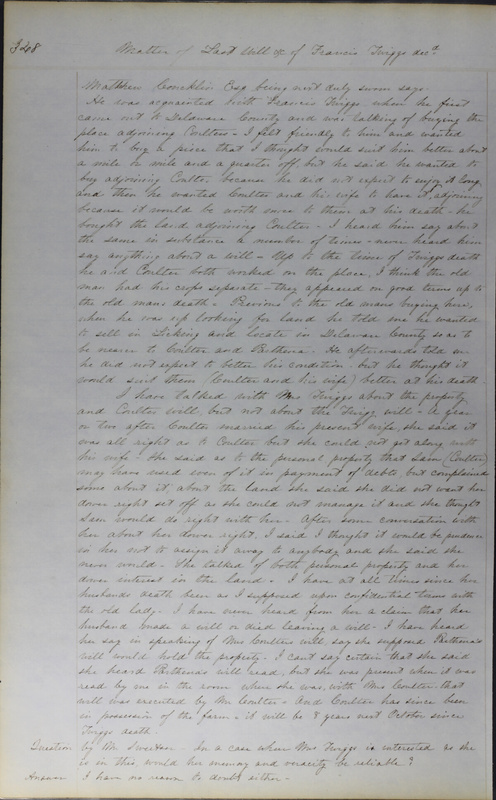 348
Matter of Last Will &c of Francis Twiggs decd
Matthew Concklin Esq being next duly sworn says
He was acquainted with Francis Twiggs when he first
came out to Delaware County and was talking of buying the
place adjoining Coulters - I felt friendly to him and wanted
him to buy a piece that I thought would suit him better about
a mile or mile and a quarter off, but he said he wanted to
buy adjoining Coulter because he did not expect to enjoy it long
and then he wanted Coulter and his wife to have it, adjoining
because it would be worth more to them at his death - he
bought the land adjoining Coulter - I heard him say about
the same in substance a number of times - never heard him
say anything about a will - Up to the time of Twiggs death
he and Coulter both worked on the place, I think the old
man had his crops separate - they appeared on good terms up to
the old mans death - Previous to the old mans buying here,
when he was up looking for land he told me he wanted
to sell in Licking and locate in Delaware County so as to
be nearer to Coulter and Parthena. He afterwards told me
he did not expect to better his condition but he thought it
would suit them (Coulter and his wife) better at his death.
I have talked with Mrs Twiggs about the property
and Coulter will, but not about the Twigg will - A year
or two after Coulter married his present wife, she said it
was all right as to Coulter but she could not get along with
his wife - She said as to the personal property that Sam (Coulter)
may have used even of it in payment of debts, but complained
some about it, about the land she said she did not want her
dower right set off as she could not manage it and she thought
Sam would do right with her - After some conversation with
her about her dower right, I said I thought it would be prudence
in her not to assign it away to anybody and she said she
never would - She talked of both personal property and her
dower interest in the land - I have at all times since her
husbands death been as I supposed upon confidential terms with
the old lady - I have never heard from her a claim that her
husband made a will or died leaving a will - I have heard
her say in speaking of Mrs Coulters will say she supposed Parthena's
will would hold the property - I cant say certain that she said
she heard Parthenas will read, but she was present when it was
read by me in the room where she was, with Mrs Coulter - that
will was executed by Mrs Coulter - And Coulter has since been
in possession of the farm - it will be 8 years next October since
Twiggs death
Question by Mr Sweetser - In a case where Mrs Twiggs is interested as she
is in this, would her memory and veracity be reliable?
Answer I have no reason to doubt either -